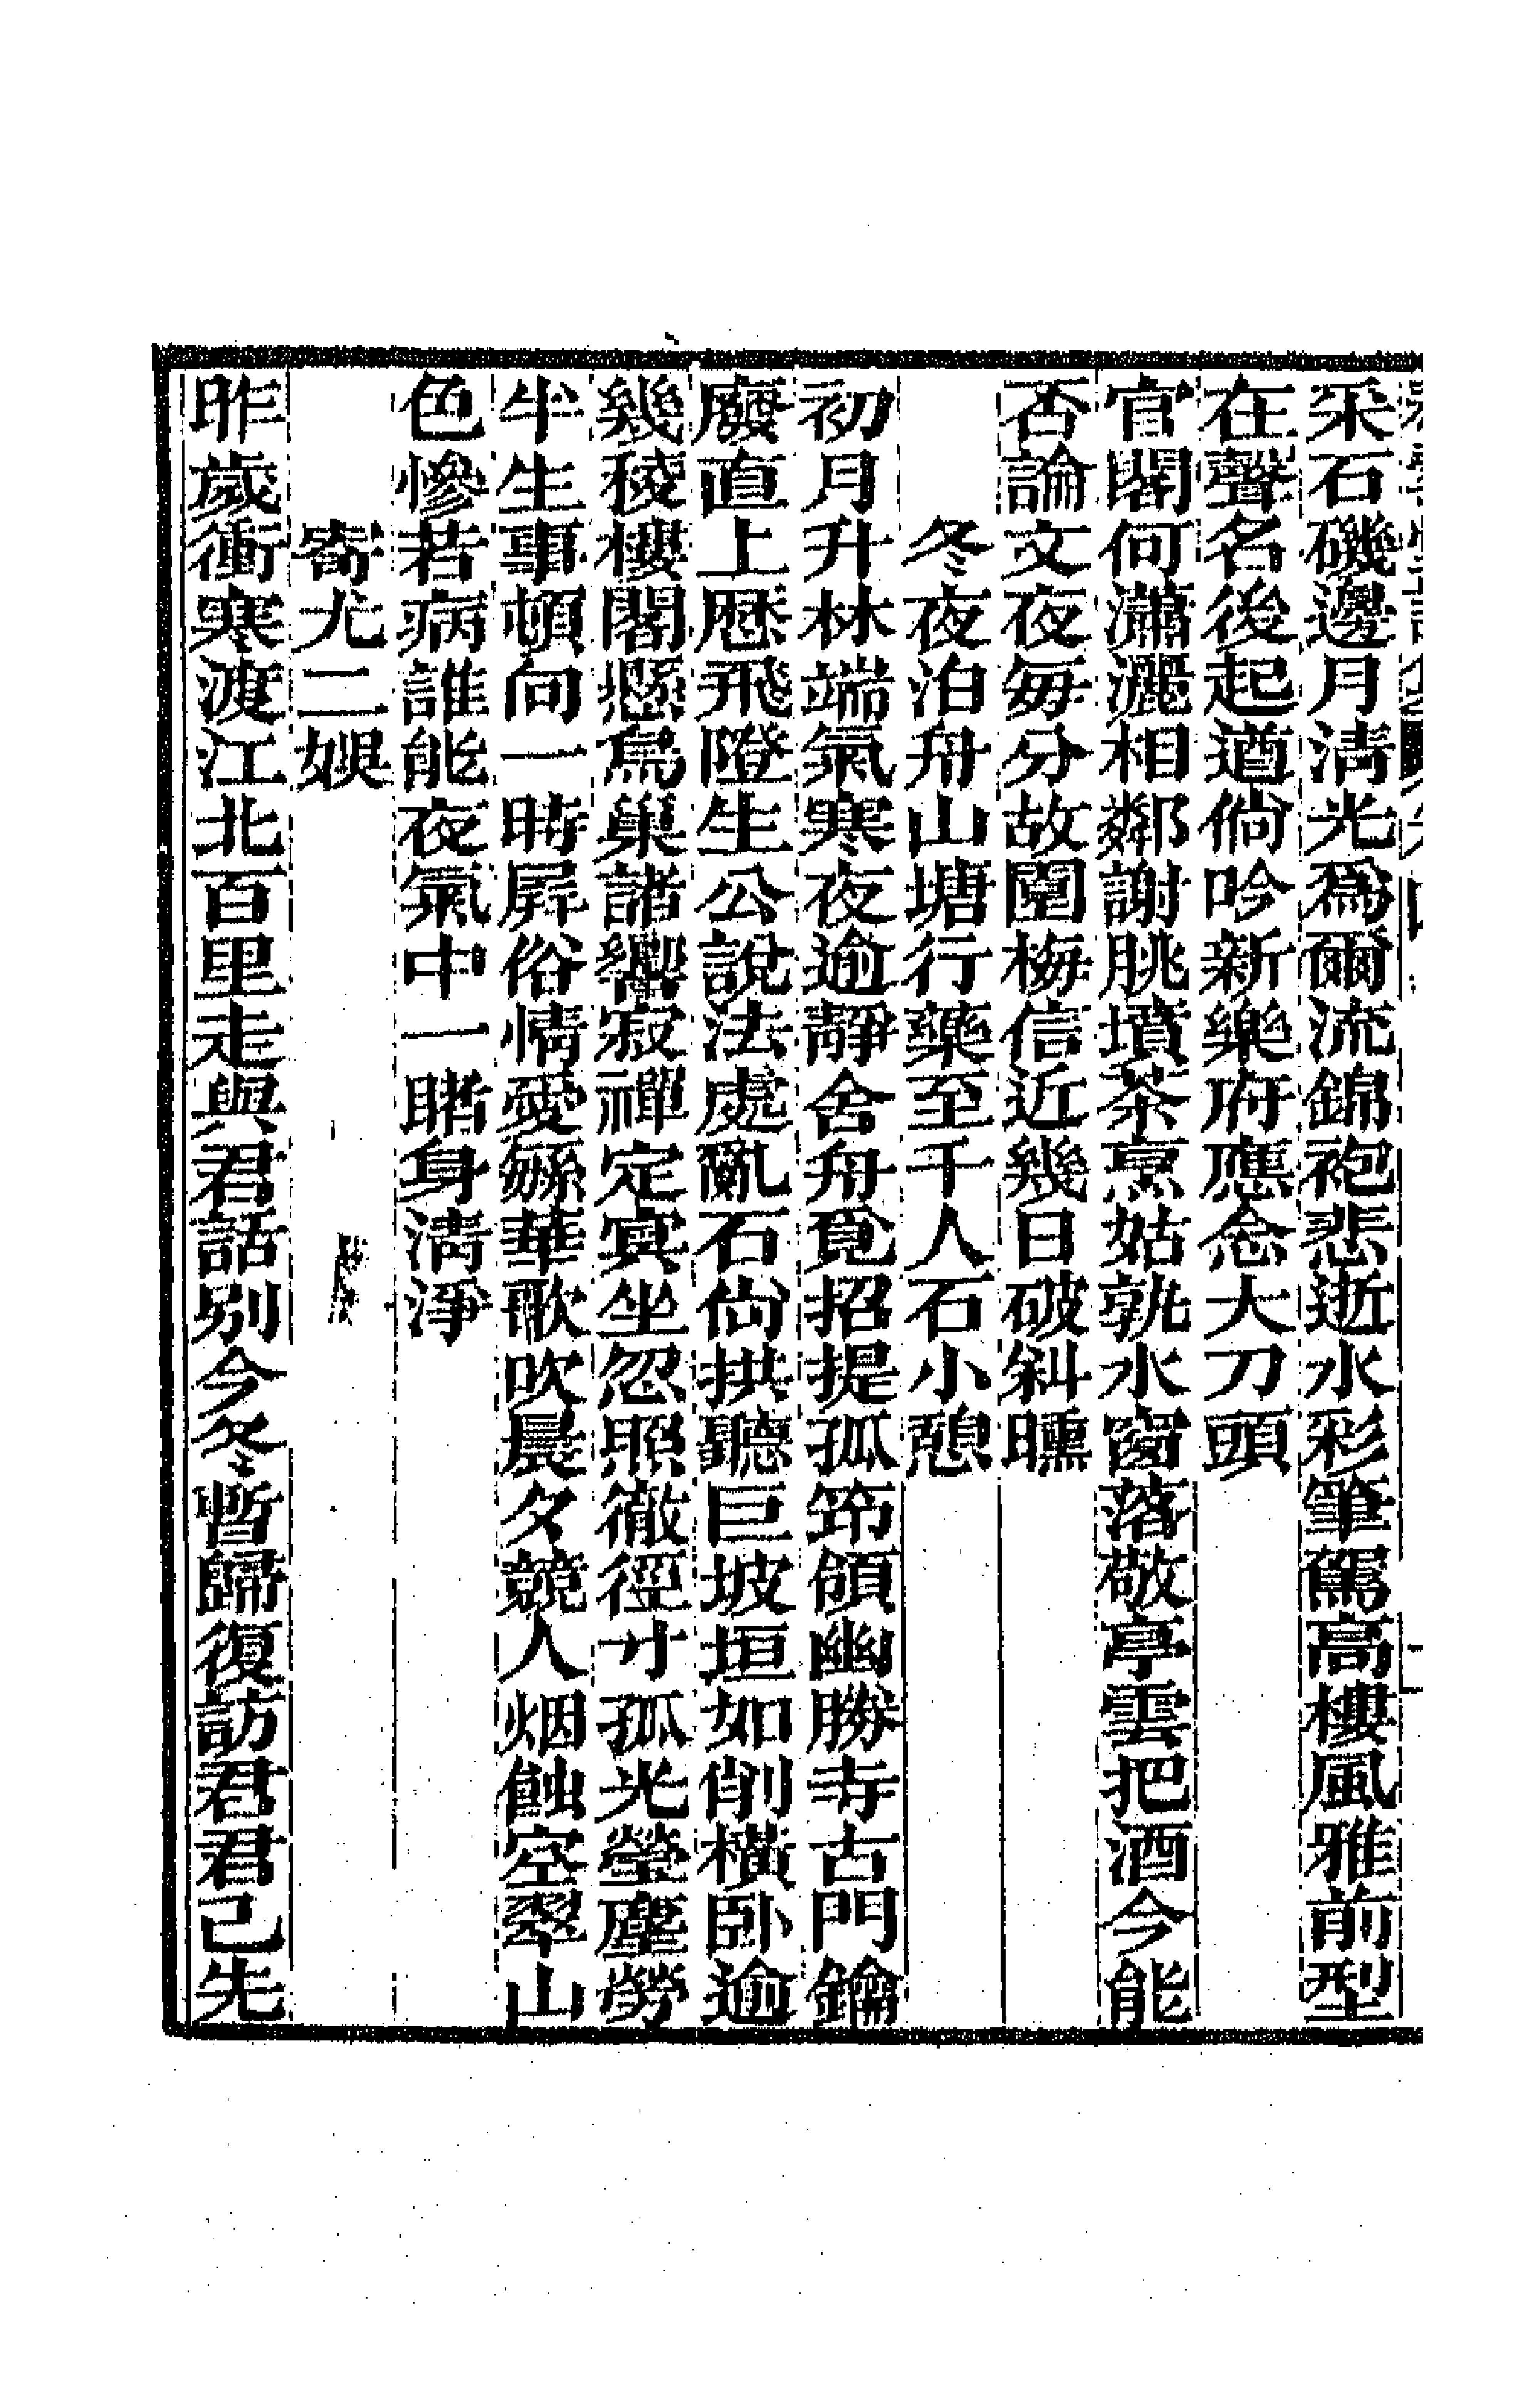 采石磯邊月清光爲爾流錦袍悲逝水彩筆駕高樓風雅前型
在聲名後起遒倘吟新樂府應念大刀頭
官閣何瀟灑相鄰謝朓墳茶烹姑孰水窗落敬亭雲把酒今能
否論文夜每分故園梅信近幾日破斜曛
冬夜泊舟山塘行藥至千人石小憩
初月升林端氣寒夜逾靜舍舟覓招提孤筇領幽勝寺古門鑰
廢直上歷飛隥生公說法處亂石尙拱聽巨坡垣如削橫卧逾
幾稜樓閣懸鳥巢諸響寂禪定冥坐忽照徹徑寸孤光瑩塵勞
半生事頓向一時屏俗情愛緐華歌吹晨夕競人烟蝕空翠山
色慘若病誰能夜氣中一睹身清淨
寄尤二娛
昨歲衝寒渡江北百里走與君話別今冬暫歸復訪君君已先